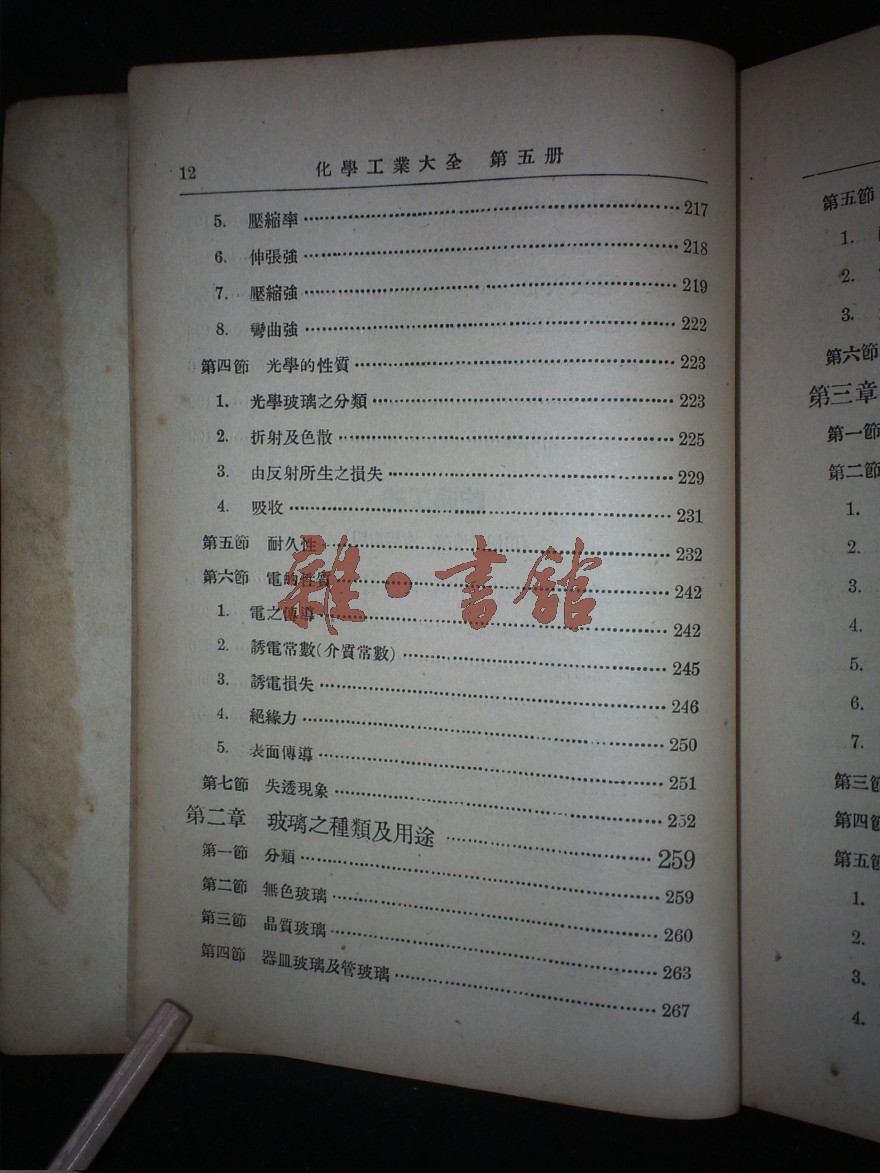 12 化學工業大全 第五册
5. 壓縮率 217
6. 伸張強 218
7. 壓縮強 219
8. 彎曲強 222
第四節 光學的性質 223
1. 光學玻璃之分類 223
2. 折射及色散 225
3. 由反射所生之損失 229
4. 吸收 231
第五節 耐久性 232
第六節 電的性質 242
1. 電之傳導 242
2. 誘電常數(介質常數) 245
3. 誘電損失 246
4. 絕緣力 250
5. 表面傳導 251
第七節 失透現象 252
第二章 玻璃之種類及用途 259
第一節 分類 259
第二節 無色玻璃 260
第三節 晶質玻璃 263
第四節 器皿玻璃及管玻璃 267
雜·書館
第五節
1.
2.
3.
第六節
第三章
第一節
第二節
1.
2.
3.
4.
5.
6.
7.
第三節
第四節
第五節
1.
2.
3.
4.